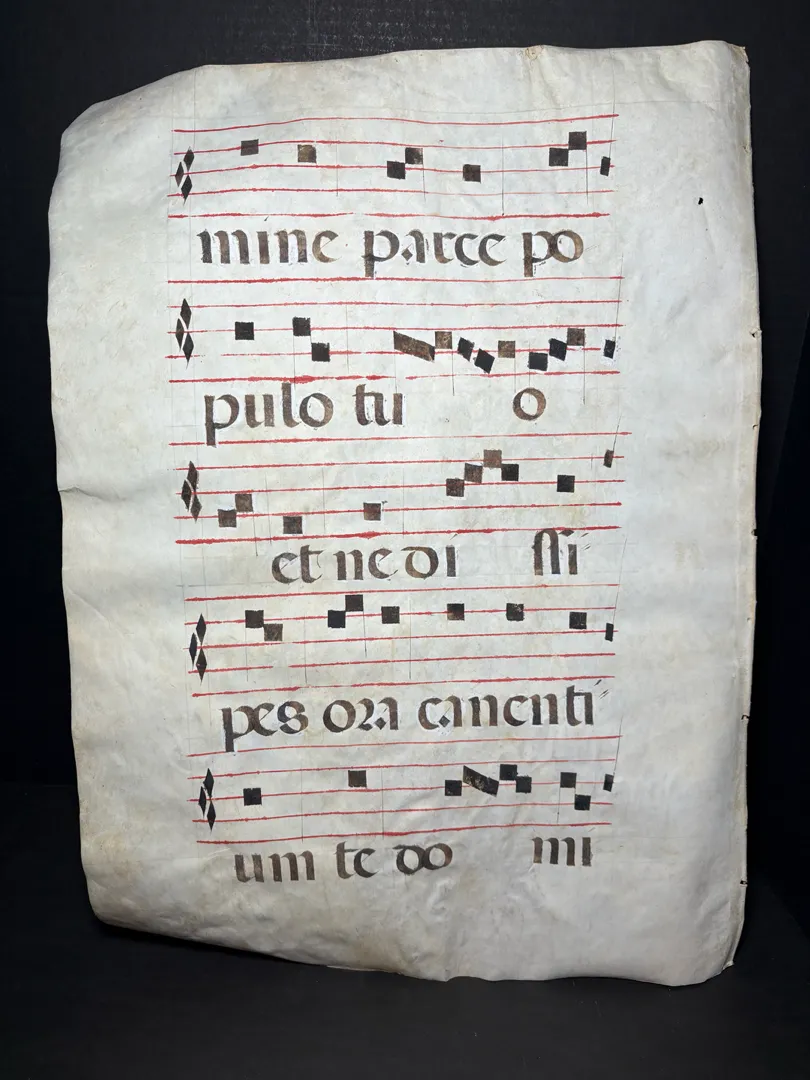 mine parce po
pulo tu o
et ne di ssi
pes ora canenti
um te do mi